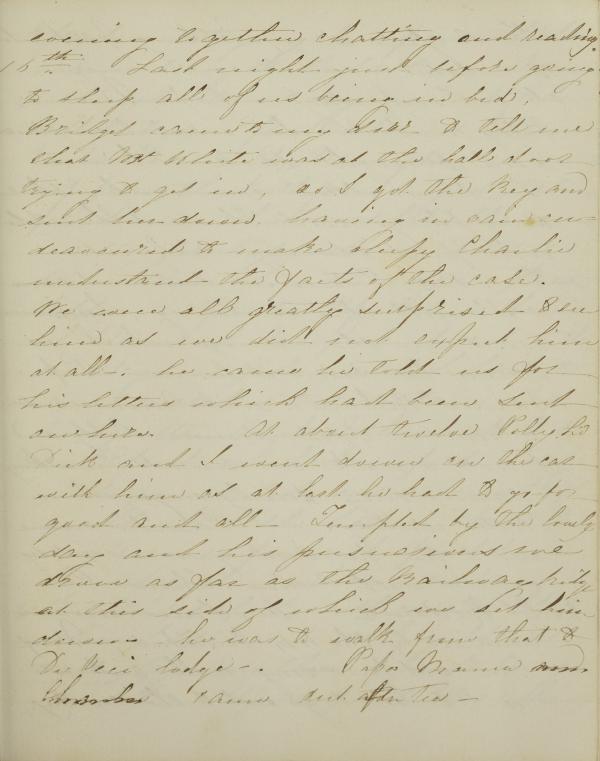 evening together chatting and reading.
15th. Last night just before going
to sleep all of us being in bed,
Bridget came to my door to tell me
that Mr White was at the hall door
trying to get in, so I got the key and
sent her down having in vain en-
deavoured to make sleepy Charlie
understand the facts of the case.
We were all greatly surprised to see
him as we did not expect him
at all. he came he told us for
his letters which had been sent
on here. At about twelve Polly
Dick and I went down on the car
with him as at last he had to go for
good and all — Tempted by the lovely
day and his persuasions we
drove as far as the Railway bridge
at this side of which we let him
down he was to walk from that to
De Veci lodge —. Papa Mama and
came out after tea —